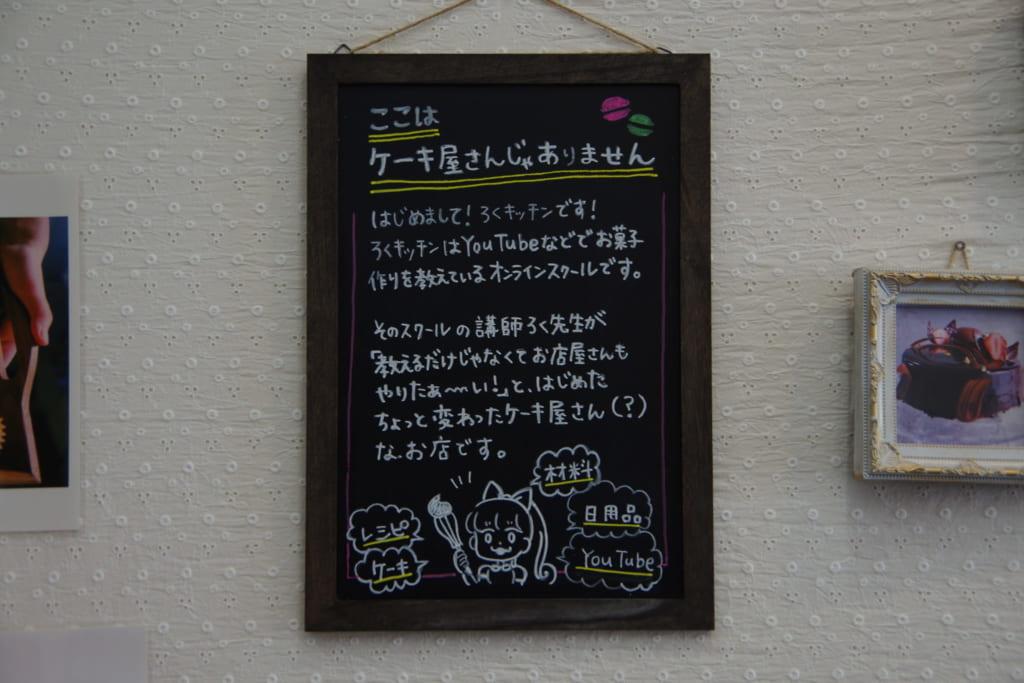 ここは
ケーキ屋さんじゃありません
はじめまして!ろくキッチンです!
ろくキッチンはYouTubeなどでお菓子
作りを教えているオンラインスクールです。
そのスクールの講師ろく先生が
「教えるだけじゃなくてお店屋さんも
やりたぁ〜い!」と、はじめた
ちょっと変わったケーキ屋さん(?)
な、お店です。
材料
レシピ
日用品
ケーキ
YouTube